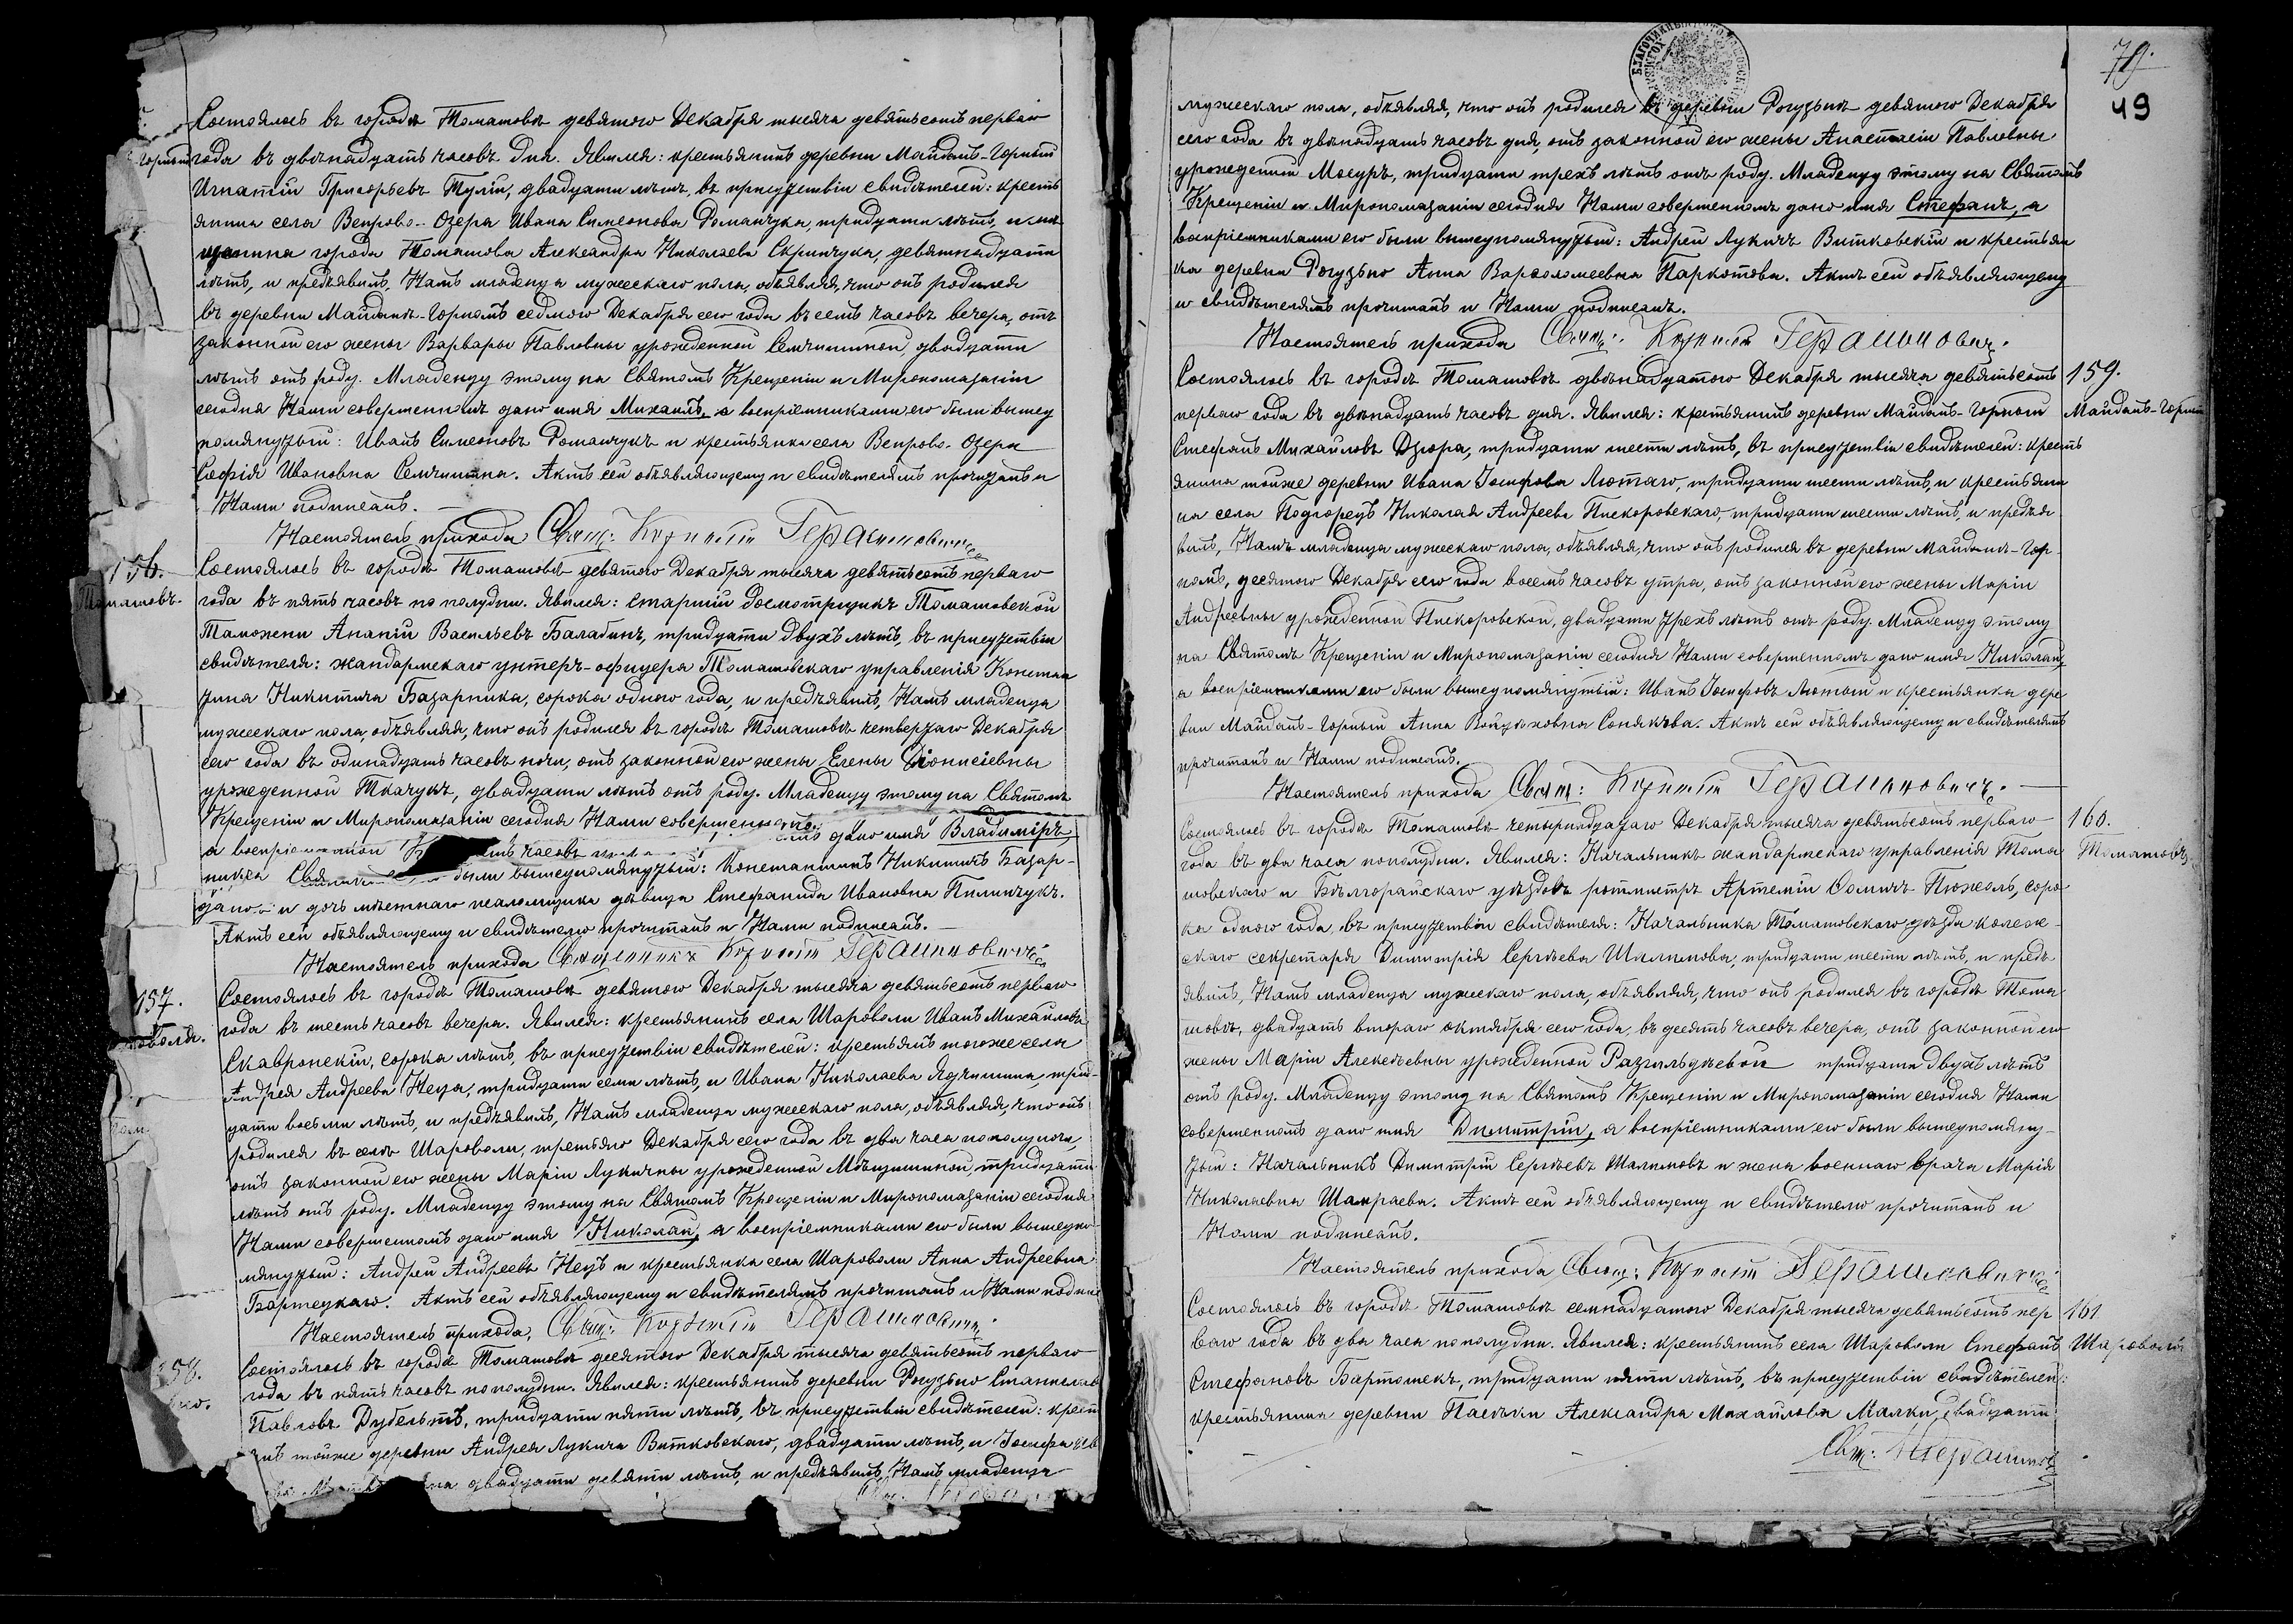 Состоялось въ городѣ Томашовѣ девятого Декабря тысяча девятьсотъ перваго
Горный
года въ двѣнадцать часовъ дня. Явился: крестьянинъ деревни Майданъ-Горный
Игнатій Григорьевъ Тулій, двадцати лѣтъ, въ присутствіи свидѣтелей: кресть
янина села Вепрово-Озера Ивана Симеонова Романчука, тридцати лѣтъ, и мѣ
щанина города Томашова Александра Николаева Скринчука, девятнадцати
лѣтъ, и предъявилъ Намъ младенца мужескаго пола, объявляя, что онъ родился
въ деревни Майданѣ-Горномъ седмого Декабря сего года въ семь часовъ вечера, отъ
законной его жены Варвары Павловны урожденной Семчишиной, двадцати
лѣтъ отъ роду. Младенцу этому на Святомъ Крещеніи и Миропомазаніи
сегодня Нами совершенномъ дано имя Михаилъ, а воспріемниками его были вышеу
помянутый: Иванъ Симеоновъ Романчукъ и крестьянка села Вепрово-Озера
Софія Ивановна Семчишина. Актъ сей объявляющему и свидѣтелямъ прочитанъ и
Нами подписанъ.
Настоятель прихода Свящ: Корнилій Герасимовичъ
156.
Томашовъ
Состоялось въ городѣ Томашовѣ девятого Декабря тысяча девятьсотъ перваго
года въ пять часовъ по полудни. Явился: старшій досмотрщикъ Томашовской
Таможни Ананій Васильевъ Балабинъ, тридцати двухъ лѣтъ, въ присутствіи
свидѣтеля: жандармскаго унтеръ-офицера Томашовскаго управленія Констан
тина Никитича Базарника, сорока одного года, и предъявилъ Намъ младенца
мужескаго пола, объявляя, что онъ родился въ городѣ Томашовѣ четвертаго Декабря
сего года въ одинадцать часовъ ночи, отъ законной его жены Елены Діонисіевны
урожденной Ткачукъ, двадцати лѣтъ отъ роду. Младенцу этому на Святомъ
Крещеніи и Миропомазаніи сегодня Нами совершенномъ дано имя Владиміръ,
а воспріемниками часовъ
были вышеупомянутый: Константинъ Никитичъ Базар-
никъ и дочь мѣстнаго псаломщика дѣвица Стефанида Ивановна Пилипчукъ.
Актъ сей объявляющему и свидѣтелю прочитанъ и Нами подписанъ.
Настоятель прихода Священникъ Корнилій Герасимовичъ
157.
Состоялось въ городѣ Томашовѣ девятого Декабря тысяча девятьсотъ перваго
года въ шесть часовъ вечера. Явился: крестьянинъ села Шароволи Иванъ Михайловъ
Скавронскій, сорока лѣтъ, въ присутствіи свидѣтелей: крестьянъ тогоже села
Андрея Андреева Неца, тридцати семи лѣтъ, и Ивана Николаева Ядчишина, трид-
цати восьми лѣтъ, и предъявилъ Намъ младенца мужескаго пола, объявляя, что онъ
родился въ селѣ Шароволи, третьяго Декабря сего года въ два часа пополуночи,
отъ законной его жены Маріи Лукичны урожденной Мѣщишиной, тридцати
лѣтъ отъ роду. Младенцу этому на Святомъ Крещеніи и Миропомазаніи сегодня
Нами совершенномъ дано имя Николай, а воспріемниками его были вышеупо
мянутый: Андрей Андреевъ Нецъ и крестьянка села Шароволи Анна Андреевна
Бартецкаго. Актъ сей объявляющему и свидѣтелямъ прочитанъ и Нами подпис
Настоятель прихода, Свящ: Корнилій Герасимовичъ
158.
Состоялось въ городѣ Томашовѣ десятого Декабря тысяча девятьсотъ перваго
года въ пять часовъ пополудни. Явился: крестьянинъ деревни Рогузьно Станислав
Павловъ Дубельтъ, тридцати пяти лѣтъ, въ присутствіи свидѣтелей: крест
янъ тойже деревни Андрея Лукича Витковскаго, двадцати лѣтъ, и Іосифа
двадцати девяти лѣтъ, и предъявилъ Намъ младенца
79.
49
мужескаго пола, объявляя, что онъ родился въ деревни Рогузьнѣ девятого Декабря
сего года въ двѣнадцать часовъ дня, отъ законной его жены Анастасіи Павловны
урожденной Мосуръ, тридцати трехъ лѣтъ отъ роду. Младенцу этому на Святомъ
Крещеніи и Миропомазаніи сегодня Нами совершенномъ дано имя Стефанъ, а
воспріемниками его были вышеупомянутый: Андрей Лукичъ Витковскій и крестьян
ка деревни Рогузьно Анна Варфоломеевна Паркотова. Актъ сей объявляющему
и свидѣтелямъ прочитанъ и Нами подписанъ.
Настоятель прихода Свящ: Корнилій Герасимовичъ
159.
Майданъ-Горный
Состоялось въ городѣ Томашовѣ двѣнадцатого Декабря тысяча девятьсотъ
перваго года въ двѣнадцать часовъ дня. Явился: крестьянинъ деревни Майданъ-Горный
Стефанъ Михайловъ Дзюра, тридцати шести лѣтъ, въ присутствіи свидѣтелей: кресть
янина тойже деревни Ивана Іосифова Лютаго, тридцати шести лѣтъ, и крестьяни
на села Подгорецъ Николая Андреева Пискоровскаго, тридцати шести лѣтъ, и предъя
вилъ Намъ младенца мужескаго пола, объявляя, что онъ родился въ деревни Майданѣ-Гор-
номъ, десятого Декабря сего года восемь часовъ утра, отъ законной его жены Маріи
Андреевны урожденной Пискоровской, двадцати трехъ лѣтъ отъ роду. Младенцу этому
на Святомъ Крещеніи и Миропомазаніи сегодня Нами совершенномъ дано имя Николай,
а воспріемниками его были вышеупомянутый: Иванъ Іосифовъ Лютый и крестьянка дере
вни Майданъ-Горный Анна Войцѣховна Сенякѣва. Актъ сей объявляющему и свидѣтелямъ
прочитанъ и Нами подписанъ.
Настоятель прихода Свящ: Корнилій Герасимовичъ.
160.
Томашовъ
Состоялось въ городѣ Томашовѣ четырнадцатаго Декабря тысяча девятьсотъ перваго
года въ два часа пополудни. Явился: Начальникъ жандармскаго управленія Тома
шовскаго и Бѣлгорайскаго уѣздовъ ротмистръ Артемій Ѳомичъ Пюжоль, соро
ка одного года, въ присутствіи свидѣтеля: Начальника Томашовскаго уѣзда коллеж-
скаго секретаря Димитрія Сергѣева Шалимова, тридцати шести лѣтъ, и предъ
явилъ Намъ младенца мужескаго пола, объявляя, что онъ родился въ городѣ Тома
шовѣ, двадцать втораго октября сего года, въ десять часовъ вечера, отъ законной его
жены Маріи Алексѣевны урожденной Разгильдѣевой тридцати двухъ лѣтъ
отъ роду. Младенцу этому на Святомъ Крещеніи и Миропомазаніи сегодня Нами
совершенномъ дано имя Димитрій, а воспріемниками его были вышеупомяну-
тый: Начальникъ Димитрій Сергѣевъ Шалимовъ и жена военнаго врача Марія
Николаевна Шакраева. Актъ сей объявляющему и свидѣтелю прочитанъ и
Нами подписанъ.
Настоятель прихода Свящ: Корнилій Герасимовичъ
161
Шароволя
Состоялось въ городѣ Томашовѣ семнадцатого Декабря тысяча девятьсотъ пер
ваго года въ два часа пополудни. Явился: крестьянинъ села Шароволи Стефанъ
Стефановъ Бартошекъ, тридцати пяти лѣтъ, въ присутствіи свидѣтелей:
крестьянина деревни Пасѣки Александра Михайлова Малки, двадцати
Свящ: К Герасимов